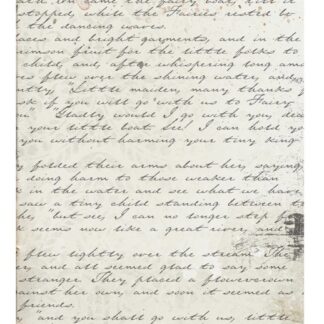 came the fairy boat, till it
stopped, while the Fairies rested to
the dancing waves.
faces and bright garments, and in the
crimson fruit for the little folks to
child, and, after whispering long amo
ves flew over the shining water, and
ntly, "Little maiden, many thanks f
sk if you will go with us to Fairy
ou." "Gladly would I go with you, dea
your little boat. See! I can hold yo
you without harming your tiny king
y folded their arms about her, saying,
doing harm to those weaker than
k in the water and see what we have
saw a tiny child standing between th
he, "but see, I can no longer step f
k seems now like a great river, and
flew lightly over the stream. The
er, and all seemed glad to say some
stranger. They placed a flowercrown
ainst her own, and soon it seemed as
friends.
" and you shall go with us, little